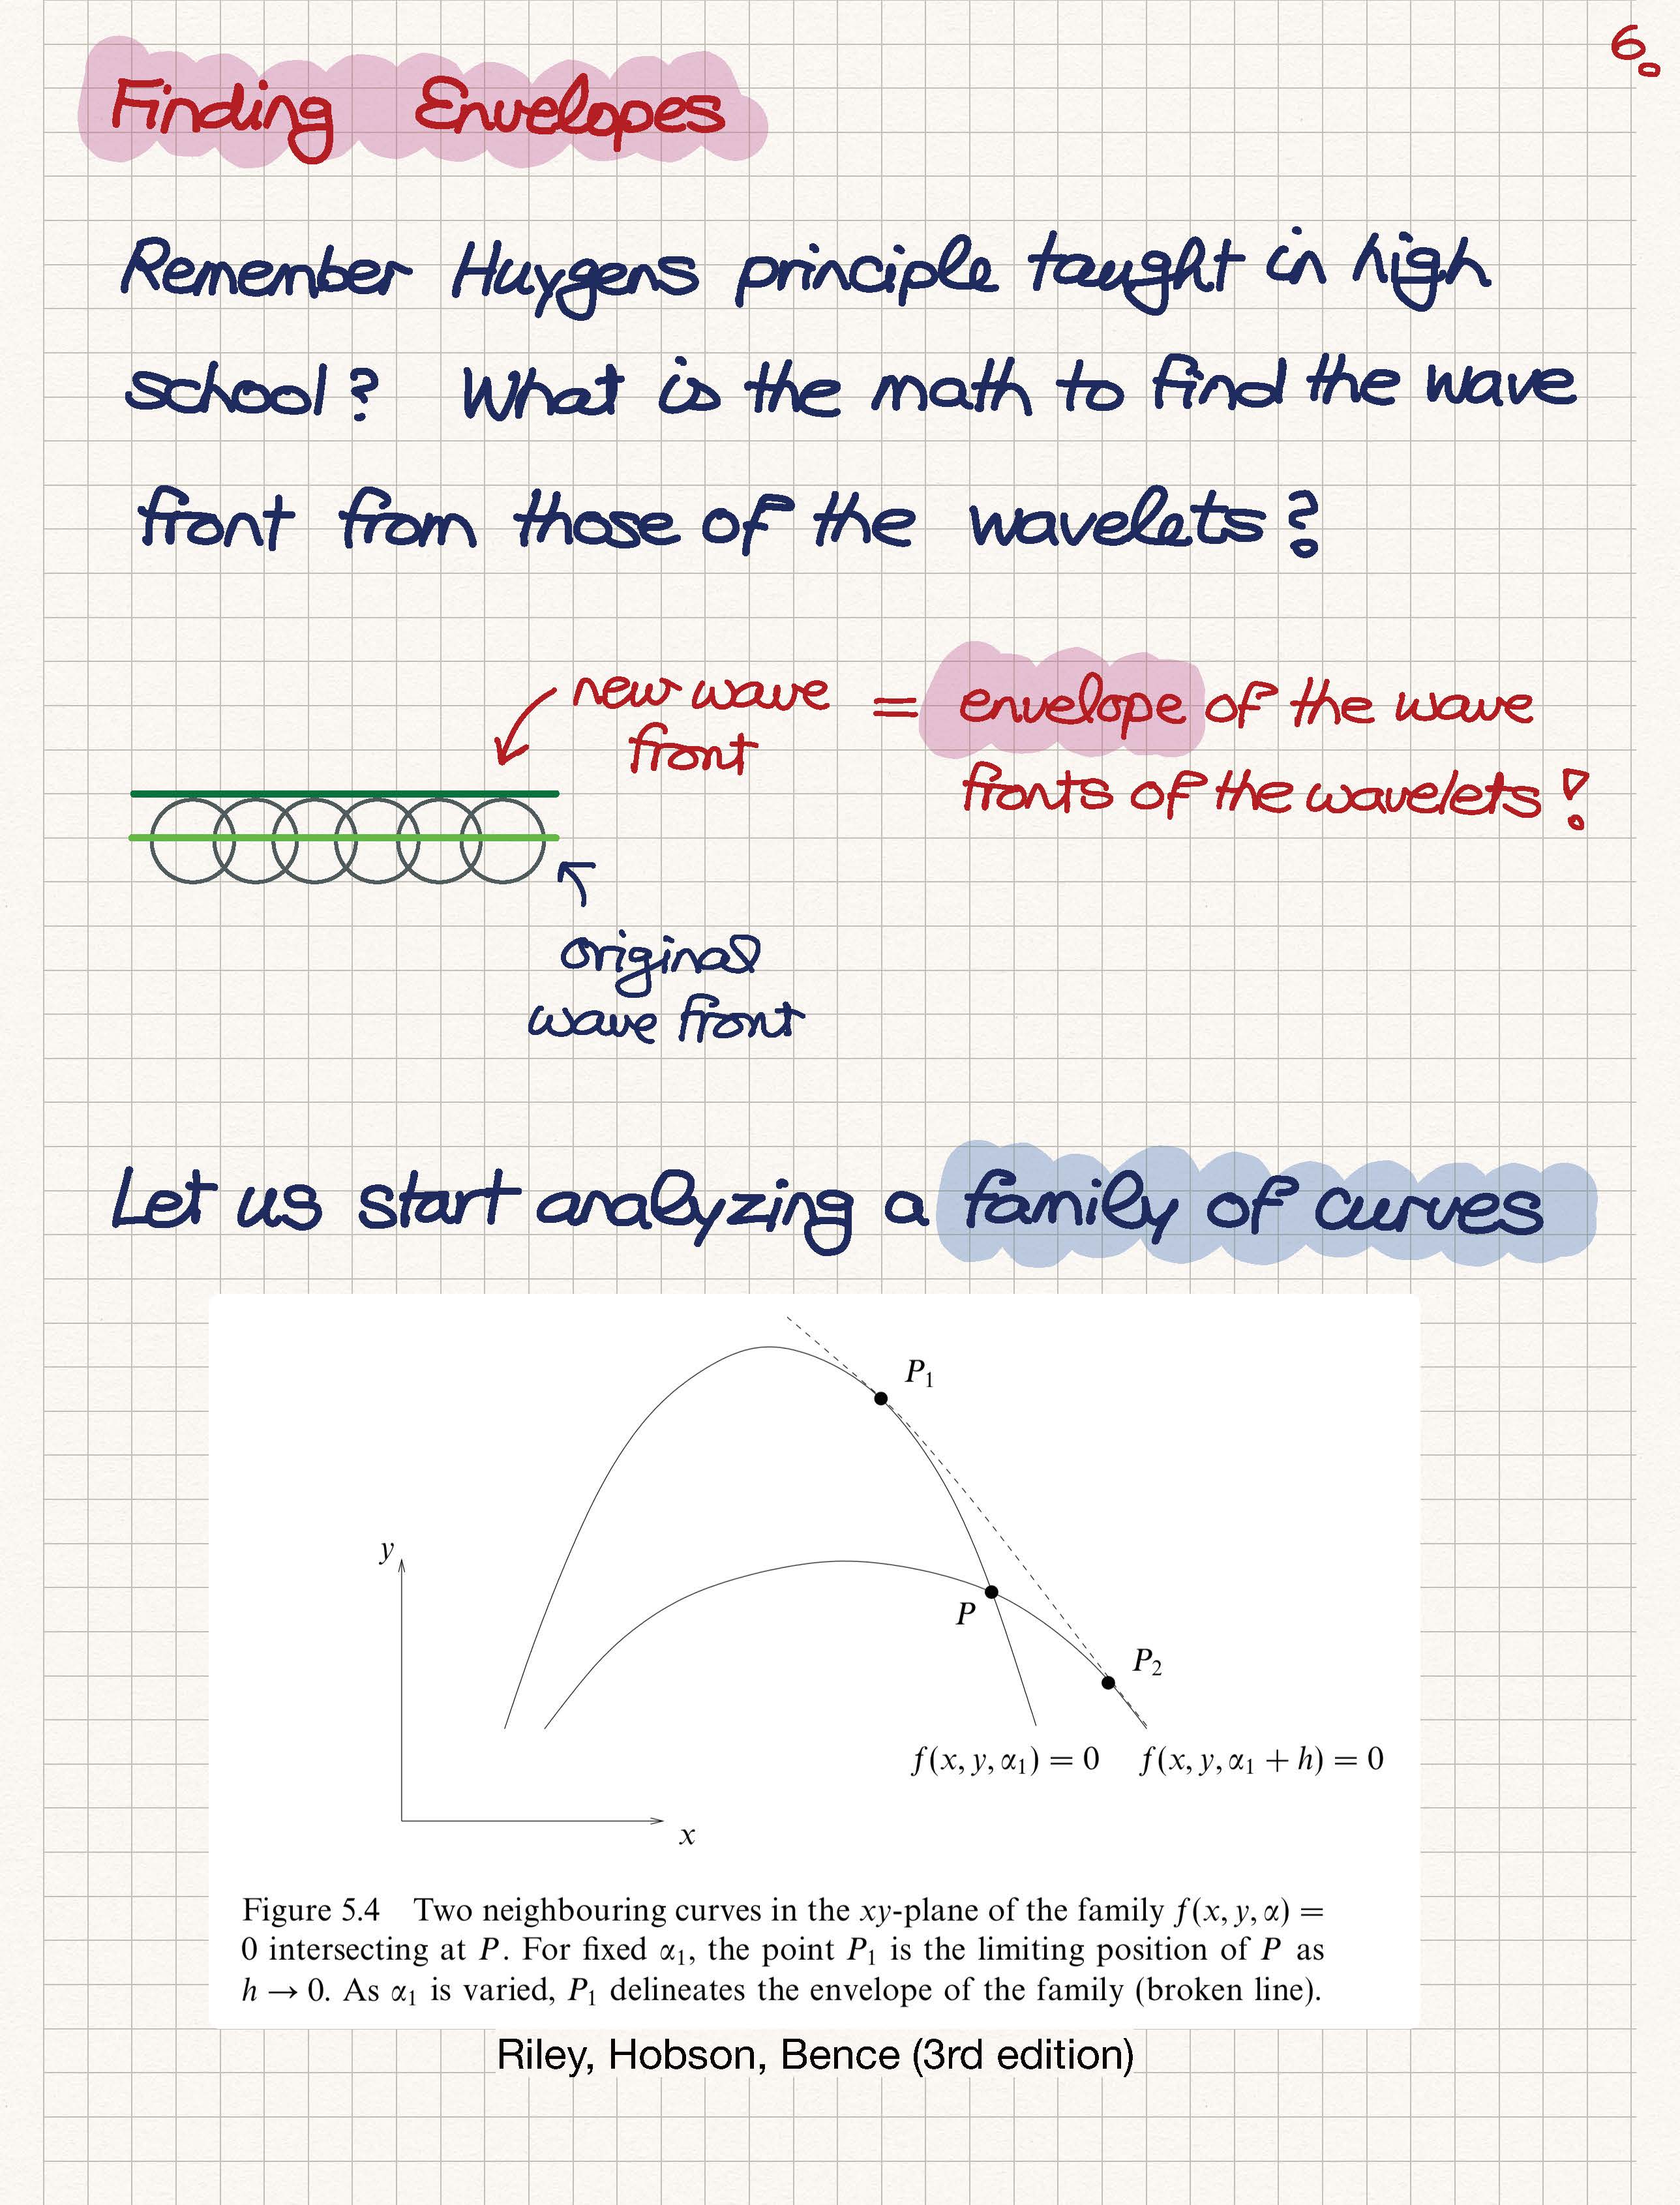 6.
Finding Envelopes
Remember Huygens principle taught in high
school? What is the math to find the wave
front from those of the wavelets?
new wave = envelope of the wave
front
fronts of the wavelets!
original
wave front
Let us start analyzing a family of curves
P₁
y
P
P₂
f(x, y, α₁) = 0 f(x, y, α₁ + h) = 0
x
Figure 5.4 Two neighbouring curves in the xy-plane of the family f(x, y, α) =
0 intersecting at P. For fixed α₁, the point P₁ is the limiting position of P as
h → 0. As α₁ is varied, P₁ delineates the envelope of the family (broken line).
Riley, Hobson, Bence (3rd edition)